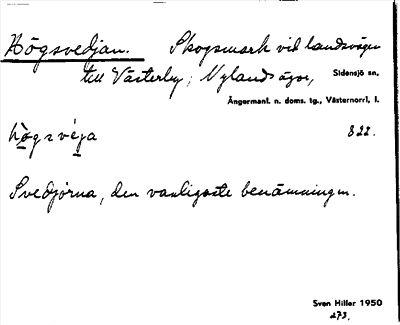 Högsvedjan. Skogsmark vid landsvägen
till Västerby; Nylands ägor, Sidensjö sn,
Ångermanl. n. doms. tg., Västernorrl. l.
hògsvé̱ga 822.
Svedjorna, den vanligaste benämningen.
Sven Hiller 1950
273.